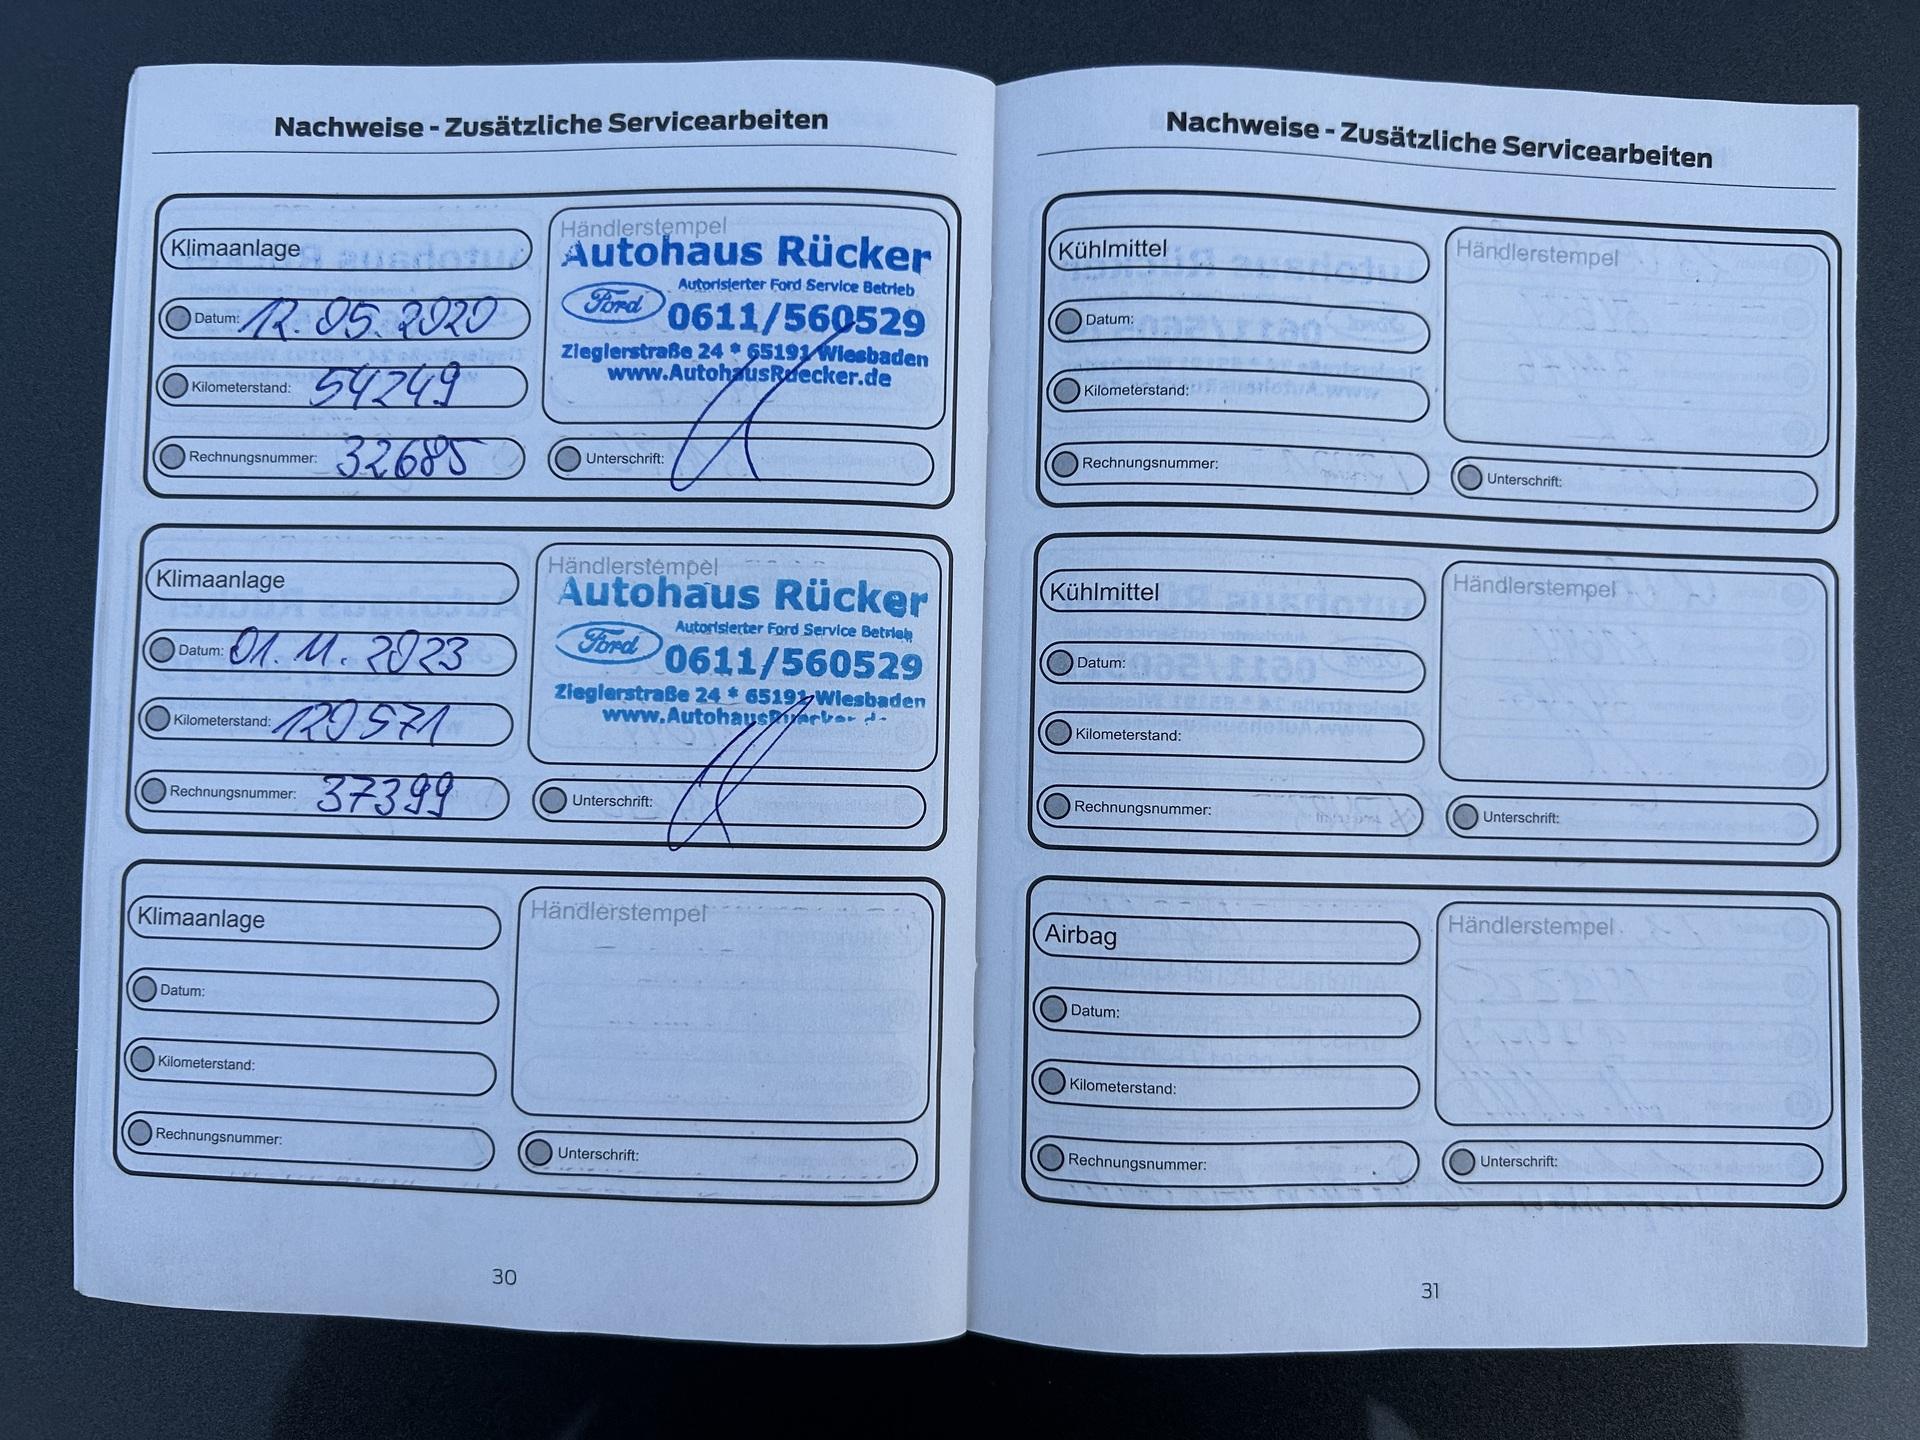 Nachweise - Zusätzliche Servicearbeiten
Klimaanlage
Datum: 12.05.2020
Kilometerstand: 54249
Rechnungsnummer: 32685
Händlerstempel
Autohaus Rücker
Autorisierter Ford Service Betrieb
Ford
0611/560529
Zieglerstraße 24 * 65191 Wiesbaden
www.AutohausRuecker.de
Unterschrift:
Klimaanlage
Datum: 01.11.2023
Kilometerstand: 129571
Rechnungsnummer: 37399
Händlerstempel
Autohaus Rücker
Autorisierter Ford Service Betrieb
Ford
0611/560529
Zieglerstraße 24 * 65191 Wiesbaden
www.AutohausRuecker.de
Unterschrift:
Klimaanlage
Datum:
Kilometerstand:
Rechnungsnummer:
Händlerstempel
Unterschrift:
30
Nachweise - Zusätzliche Servicearbeiten
Kühlmittel
Datum:
Kilometerstand:
Rechnungsnummer:
Händlerstempel
Unterschrift:
Kühlmittel
Datum:
Kilometerstand:
Rechnungsnummer:
Händlerstempel
Unterschrift:
Airbag
Datum:
Kilometerstand:
Rechnungsnummer:
Händlerstempel
Unterschrift:
31